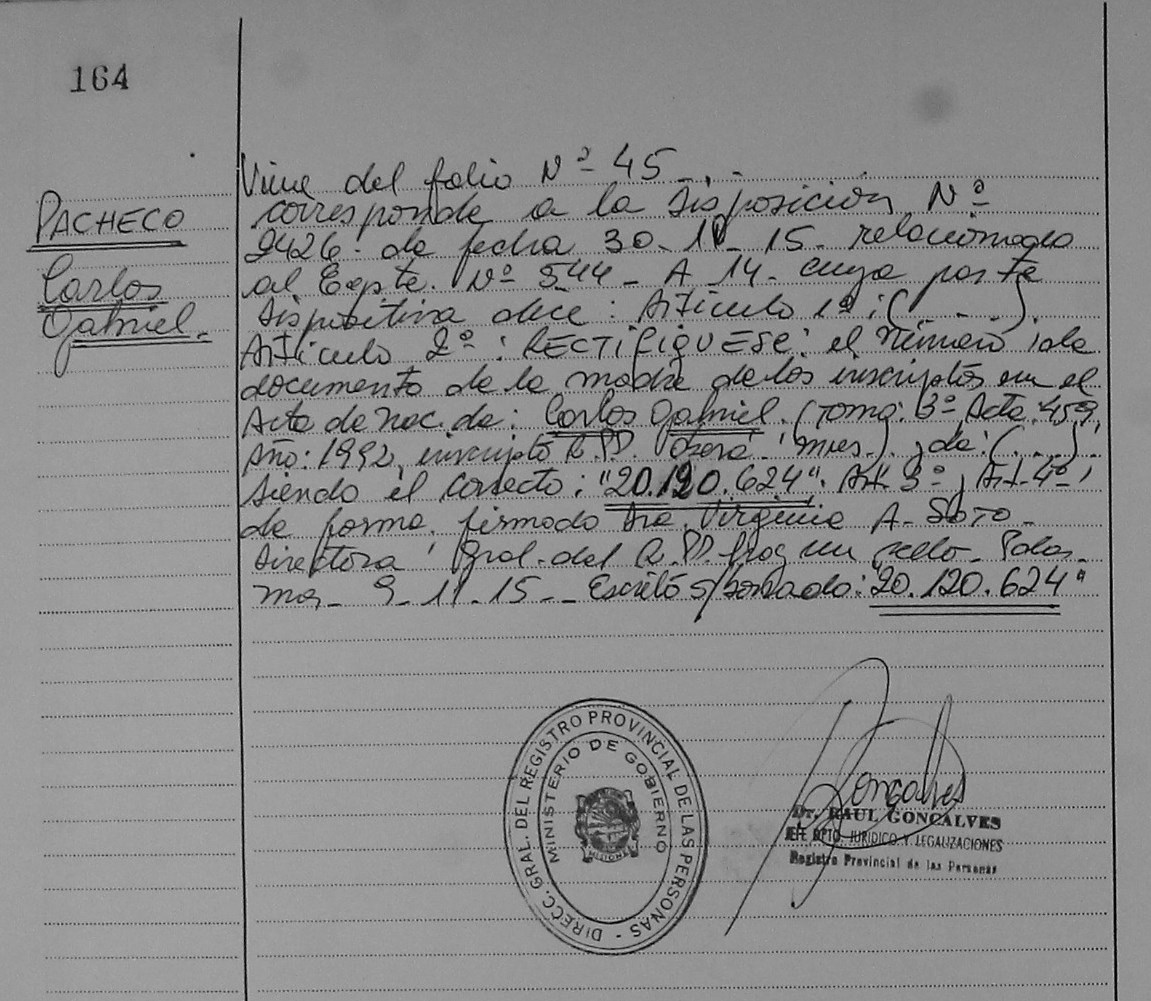 164
PACHECO
Carlos
Gabriel.
Viene del folio Nº 45 - . -
corresponde a la Disposición Nº
2426. de fecha 30-11-15. relacionada
al Expte. Nº 544 - A 14. cuya parte
Dispositiva dice: Artículo 1º: (....).
Artículo 2º: RECTIFIQUESE: el Número de
documento de la madre de los inscriptos en el
Acta de Nac. de: Carlos Gabriel. (Tomo: 3º Acta: 459,
Año: 1992, inscripto R.PP. Mnes.), de: (....).
Siendo el correcto: "20.120.624". Art. 3º, Art. 4º,
de forma. firmado Dra. Virginia A. SOTO -
Directora Gral. del R.PP. hay un sello - Posa-
11-15 - Escrito s/borrado: 20.120.624"
DIRECC. GRAL. DEL REGISTRO PROVINCIAL DE LAS PERSONAS -
MINISTERIO DE GOBIERNO
MISIONES
Goncalves
Dr. RAUL GONCALVES
JEFE DPTO. JURIDICO Y LEGALIZACIONES
Registro Provincial de las Personas